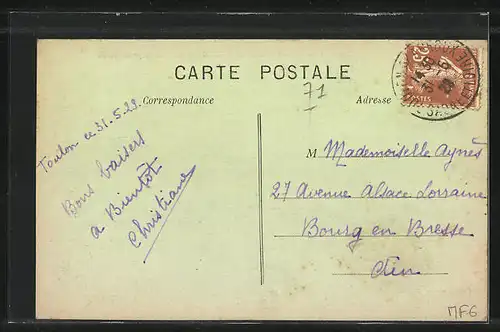 CARTE POSTALE
Correspondance
71
Adresse
25
POSTES
Toulon ce 31-5-29.
Bons baisers
a Bientôt
Christiane
M Mademoiselle Aynès
27 Avenue Alsace Lorraine
Bourg en Bresse
Ain
MF6